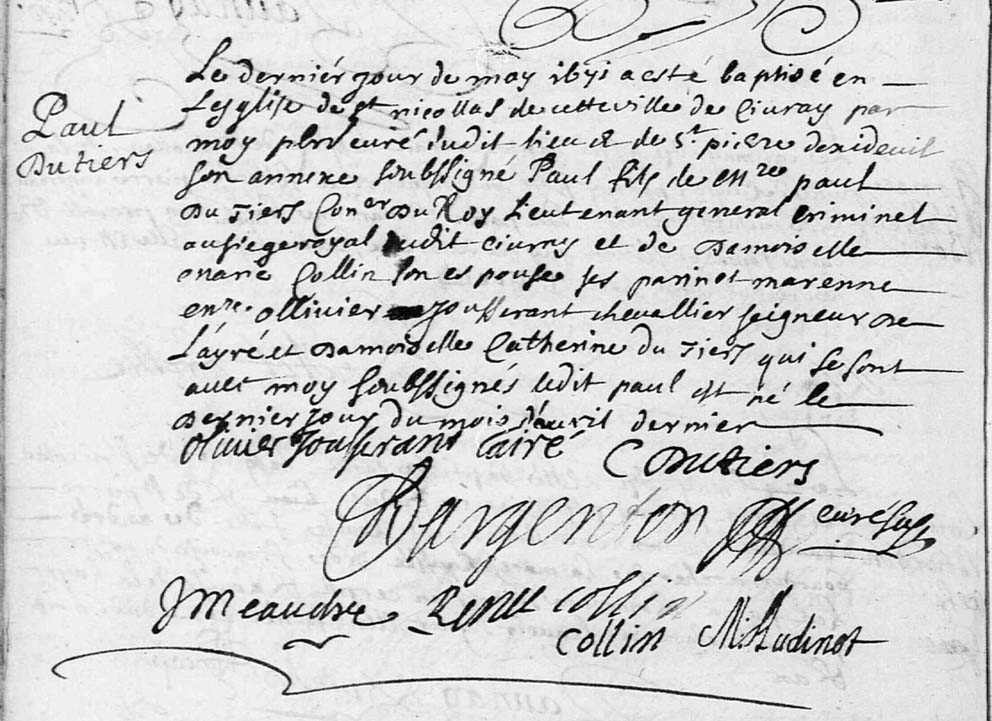 Paul
Dutiers
Le dernier jour de may 1671 a esté baptisé en
Leglise de st nicollas de cette ville de Civray par
moy pbre curé dudit lieu et de St pierre dexideuil
son annexe soubssigné Paul fils de mre paul
Du Tiers Coner Du Roy Lieutenant general criminel
au siege royal dudit civray et de Damoiselle
marie Collin son espouse ses parin et marenne
mre ollivier Jousserant chevallier seigneur de
Layré et Damoiselle Catherine du Tiers qui se sont
avec moy soubssignés ledit paul est né le
Dernier jour du mois d'avril dernier
Olivier Jousserant Lairé
C Dutiers
Dargenton
curé susd
J Meaudre
René collin
Collin